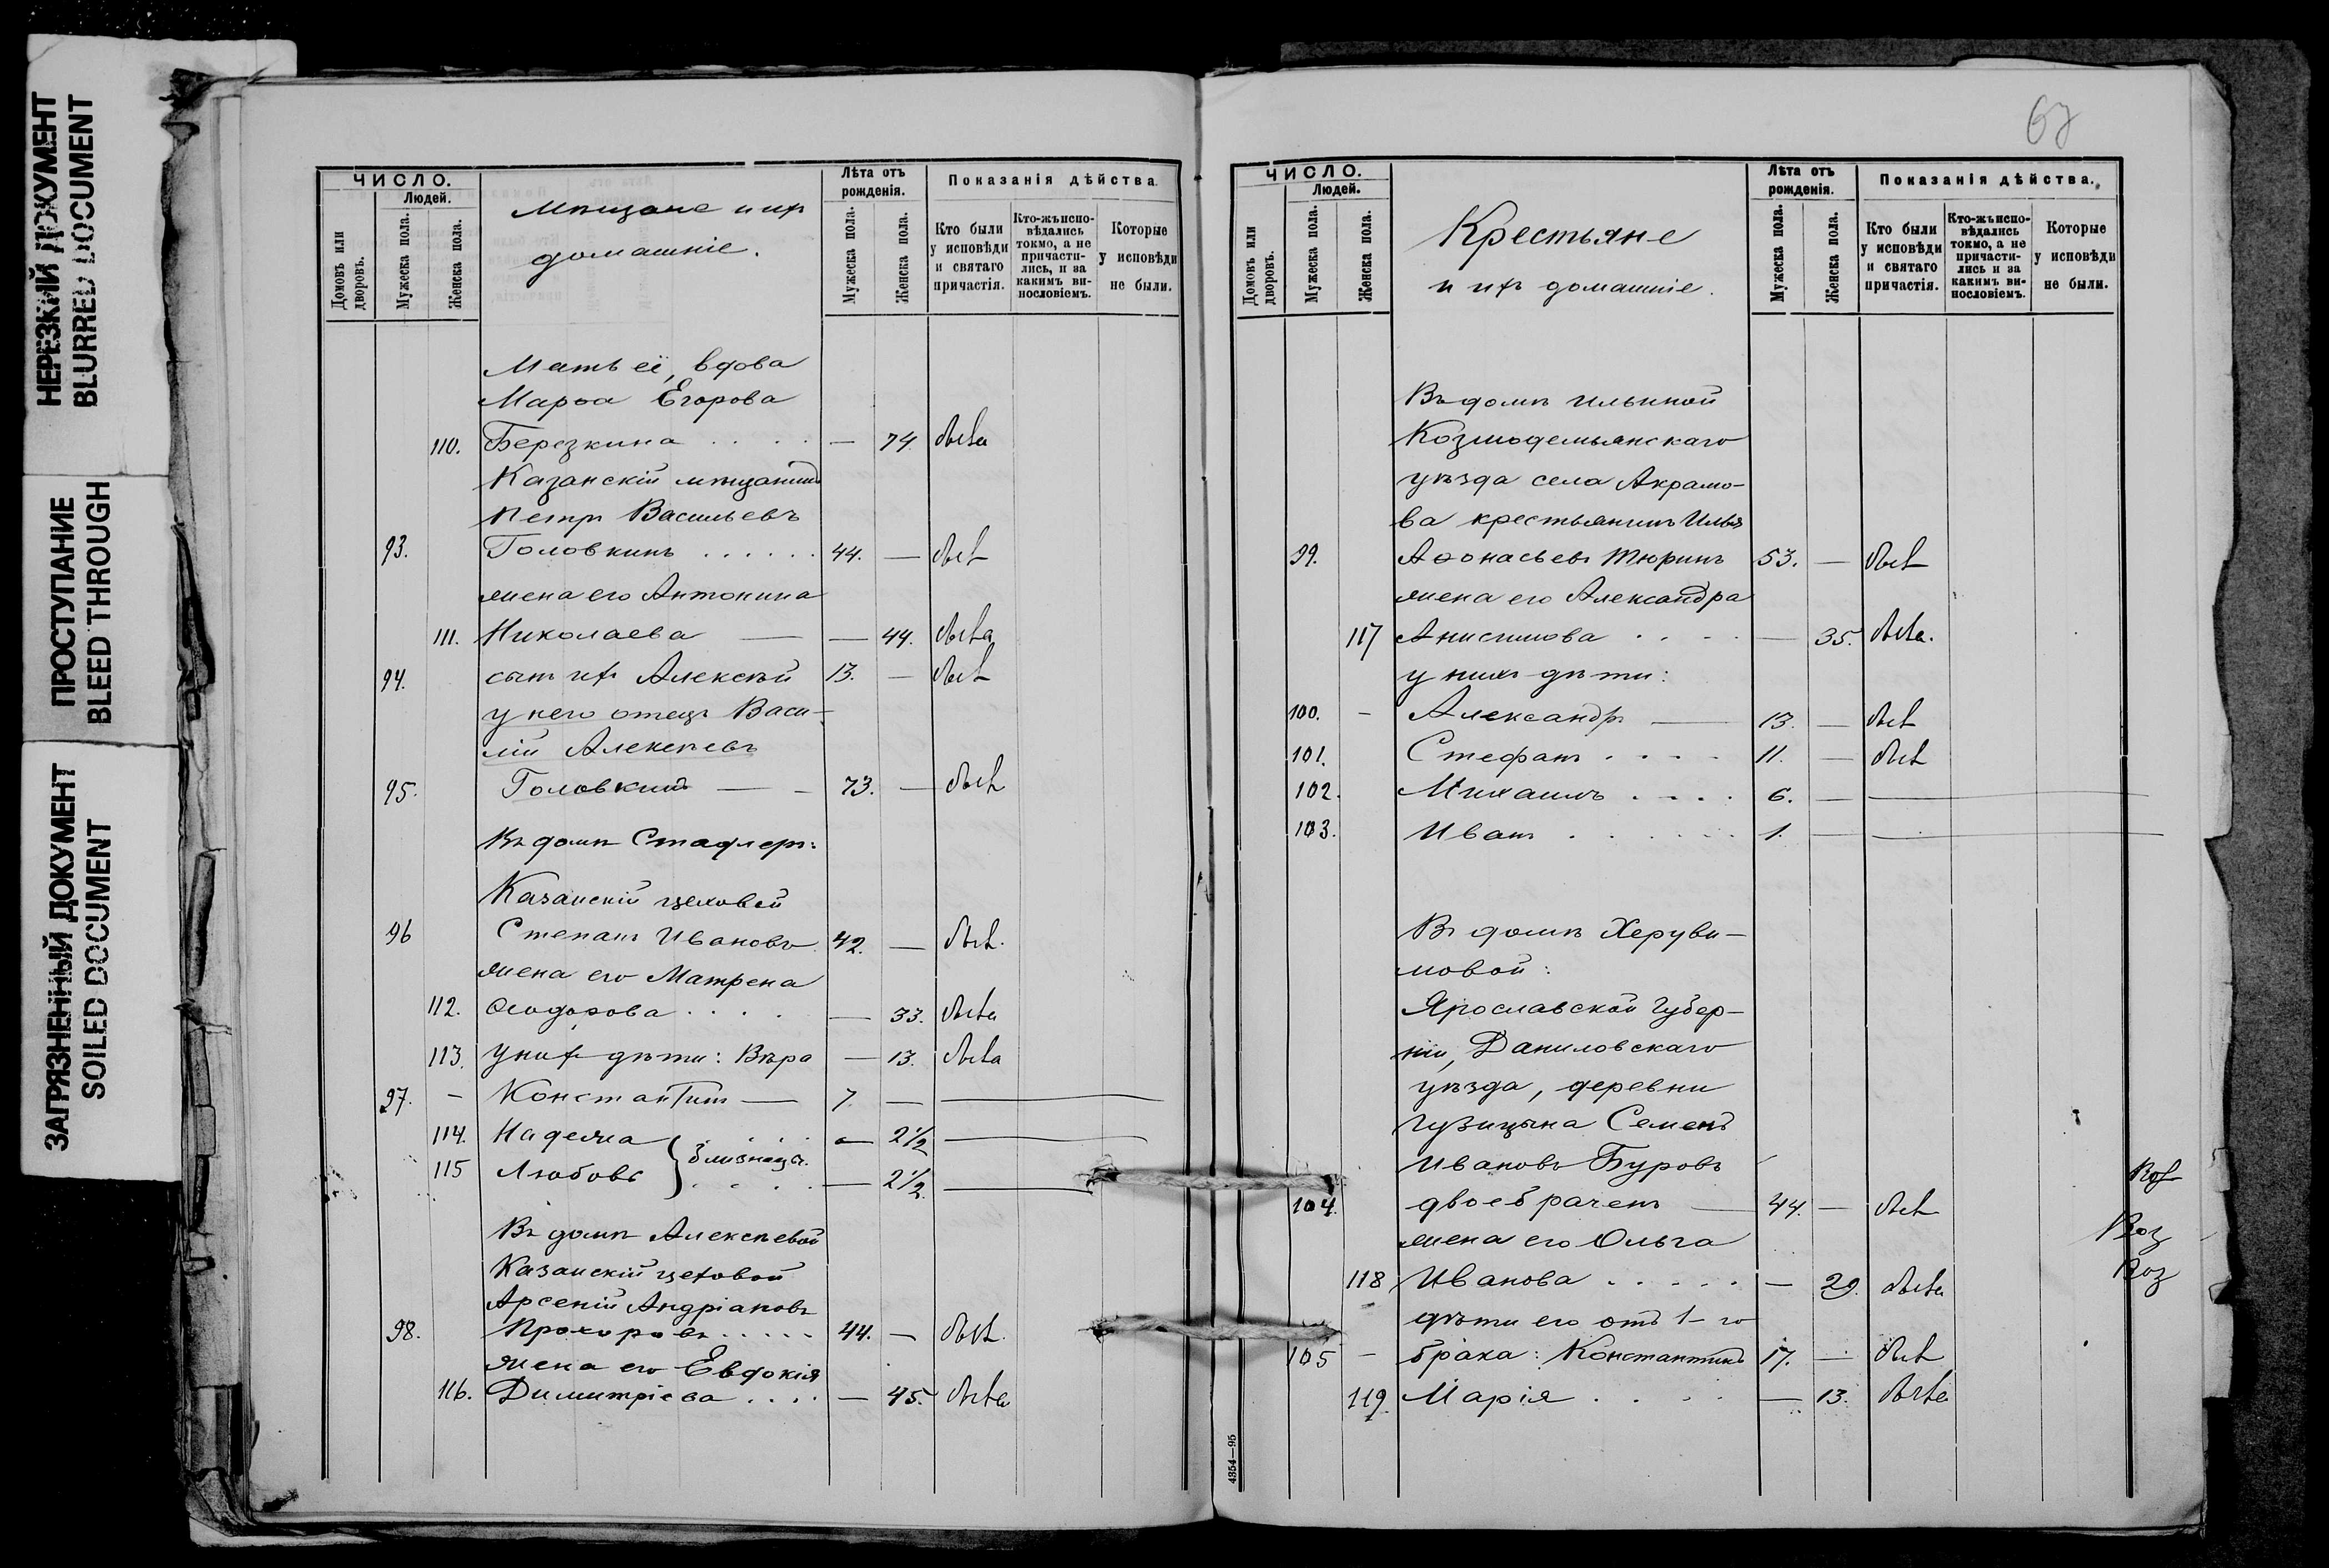 НЕРЕЗКИЙ ДОКУМЕНТ
BLURRED DOCUMENT
ПРОСТУПАНИЕ
BLEED THROUGH
ЗАГРЯЗНЕННЫЙ ДОКУМЕНТ
SOILED DOCUMENT
ЧИСЛО.
Людей.
Домовъ или дворовъ.
Мужеска пола.
Женска пола.
Мѣщане и ихъ
домашніе.
Лѣта отъ рожденія.
Мужеска пола.
Женска пола.
Показанія дѣйства.
Кто были у исповѣди и святаго причастія.
Кто-жъ испо-вѣдались токмо, а не причасти-лись, и за какимъ ви-нословіемъ.
Которые у исповѣди не были.
Мать её, вдова
Марѳа Егорова
110. Березкина . . . . — 74 была
Казанскій мѣщанинъ
Петръ Васильевъ
93. Головкинъ . . . . . . 44. — былъ
жена его Антонина
111. Николаева — — 44. была
94. сынъ ихъ Алексѣй 13. — былъ
у него отецъ Васи-
лій Алексѣевъ
95. Головкинъ — — 73. — былъ
Въ домѣ Стадлеръ:
Казанскій цеховой
96 Степанъ Ивановъ 42. — былъ.
жена его Матрена
112. Ѳеодорова . . . . — 33. была
113. у нихъ дѣти: Вѣра — 13. была
97. - Константинъ — 7. — —
114. Надежда . . . . — 2 1/2 —
близнецы.
115 Любовь . . . . — 2 1/2. —
Въ домѣ Алексѣевой
Казанскій цеховой
Арсеній Андріановъ
98. Прохоровъ . . . . . 44. — былъ.
жена его Евдокія
116. Димитріева . . . . — 45. была
67
ЧИСЛО.
Людей.
Домовъ или дворовъ.
Мужеска пола.
Женска пола.
Крестьяне
и ихъ домашніе.
Лѣта отъ рожденія.
Мужеска пола.
Женска пола.
Показанія дѣйства.
Кто были у исповѣди и святаго причастія.
Кто-жъ испо-вѣдались токмо, а не причасти-лись и за какимъ ви-нословіемъ.
Которые у исповѣди не были.
Въ домѣ Ильиной
Козмодемьянскаго
уѣзда села Акрамо-
ва крестьянинъ Илья
99. Аѳонасьевъ Тюринъ 53. — былъ
жена его Александра
117 Анисимова . . . . — 35. была.
у нихъ дѣти:
100. - Александръ — 13. — былъ
101. Стефанъ . . . . 11. — былъ
102. Михаилъ . . . . 6. — —
103. Иванъ . . . . . . 1. — —
Въ домѣ Херуви-
мовой:
Ярославской Губер-
ніи, Даниловскаго
уѣзда, деревни
Гузицына Семенъ
Ивановъ Буровъ
104. двоебраченъ — 44. — былъ
жена его Ольга
118 Иванова . . . . . — 29. была
дѣти его отъ 1-го
105 - брака: Константинъ 17. — былъ
119. Марія . . . . — 13. была
Воз
Воз
4354—95